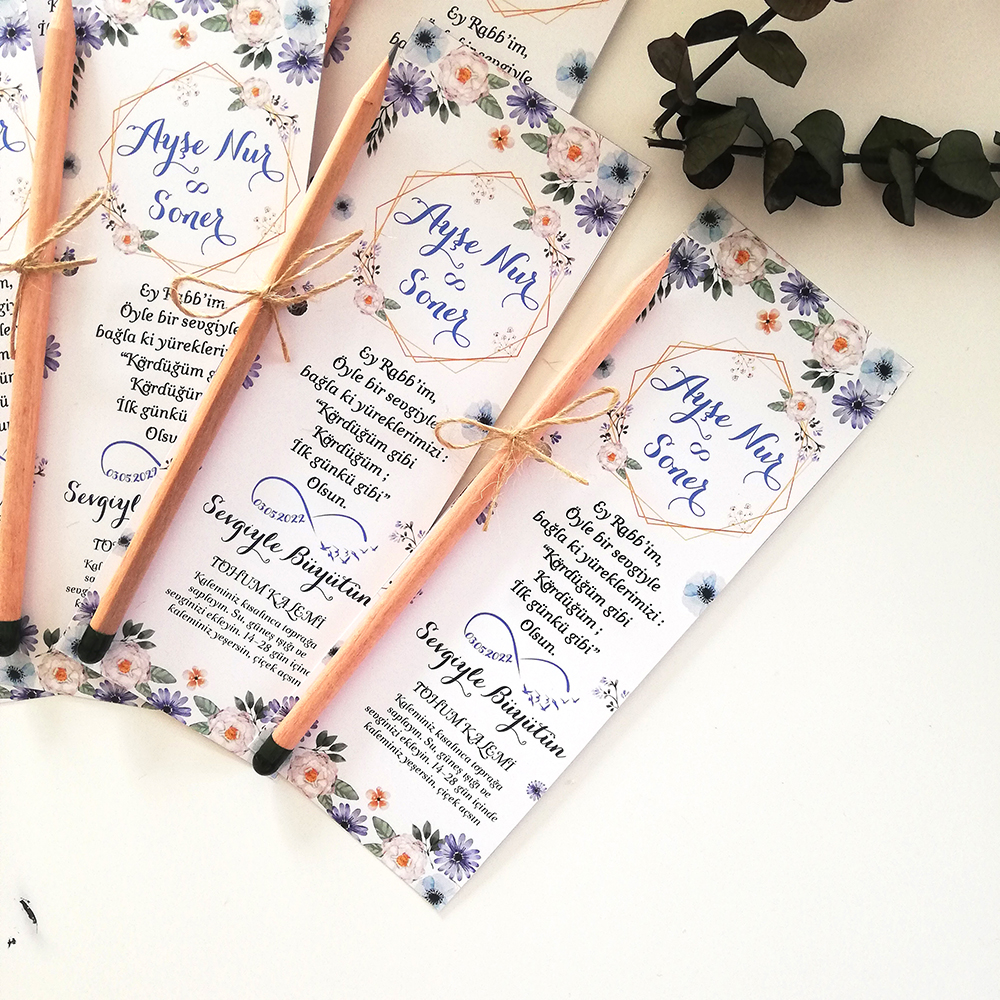 Ayşe Nur
∞
Soner
Ey Rabb'im,
Öyle bir sevgiyle
bağla ki yüreklerimizi :
"Kördüğüm gibi
Kördüğüm ;
İlk günkü gibi"
Olsun.
03.05.2022
Sevgiyle Büyütün
TOHUM KALEMİ
Kaleminiz kısalınca toprağa
saplayın. Su, güneş ışığı ve
sevginizi ekleyin. 14-28 gün içinde
kaleminiz yeşersin, çiçek açsın
Ayşe Nur
∞
Soner
Ey Rabb'im,
Öyle bir sevgiyle
bağla ki yüreklerimizi :
"Kördüğüm gibi
Kördüğüm ;
İlk günkü gibi"
Olsun.
03.05.2022
Sevgiyle Büyütün
TOHUM KALEMİ
Kaleminiz kısalınca toprağa
saplayın. Su, güneş ışığı ve
sevginizi ekleyin. 14-28 gün içinde
kaleminiz yeşersin, çiçek açsın
Ayşe Nur
∞
Soner
Ey Rabb'im,
Öyle bir sevgiyle
bağla ki yüreklerimizi
"Kördüğüm
Kördüğüm
İlk günkü
Olsun.
03.05.2022
Ey Rabb'im,
Öyle bir sevgiyle